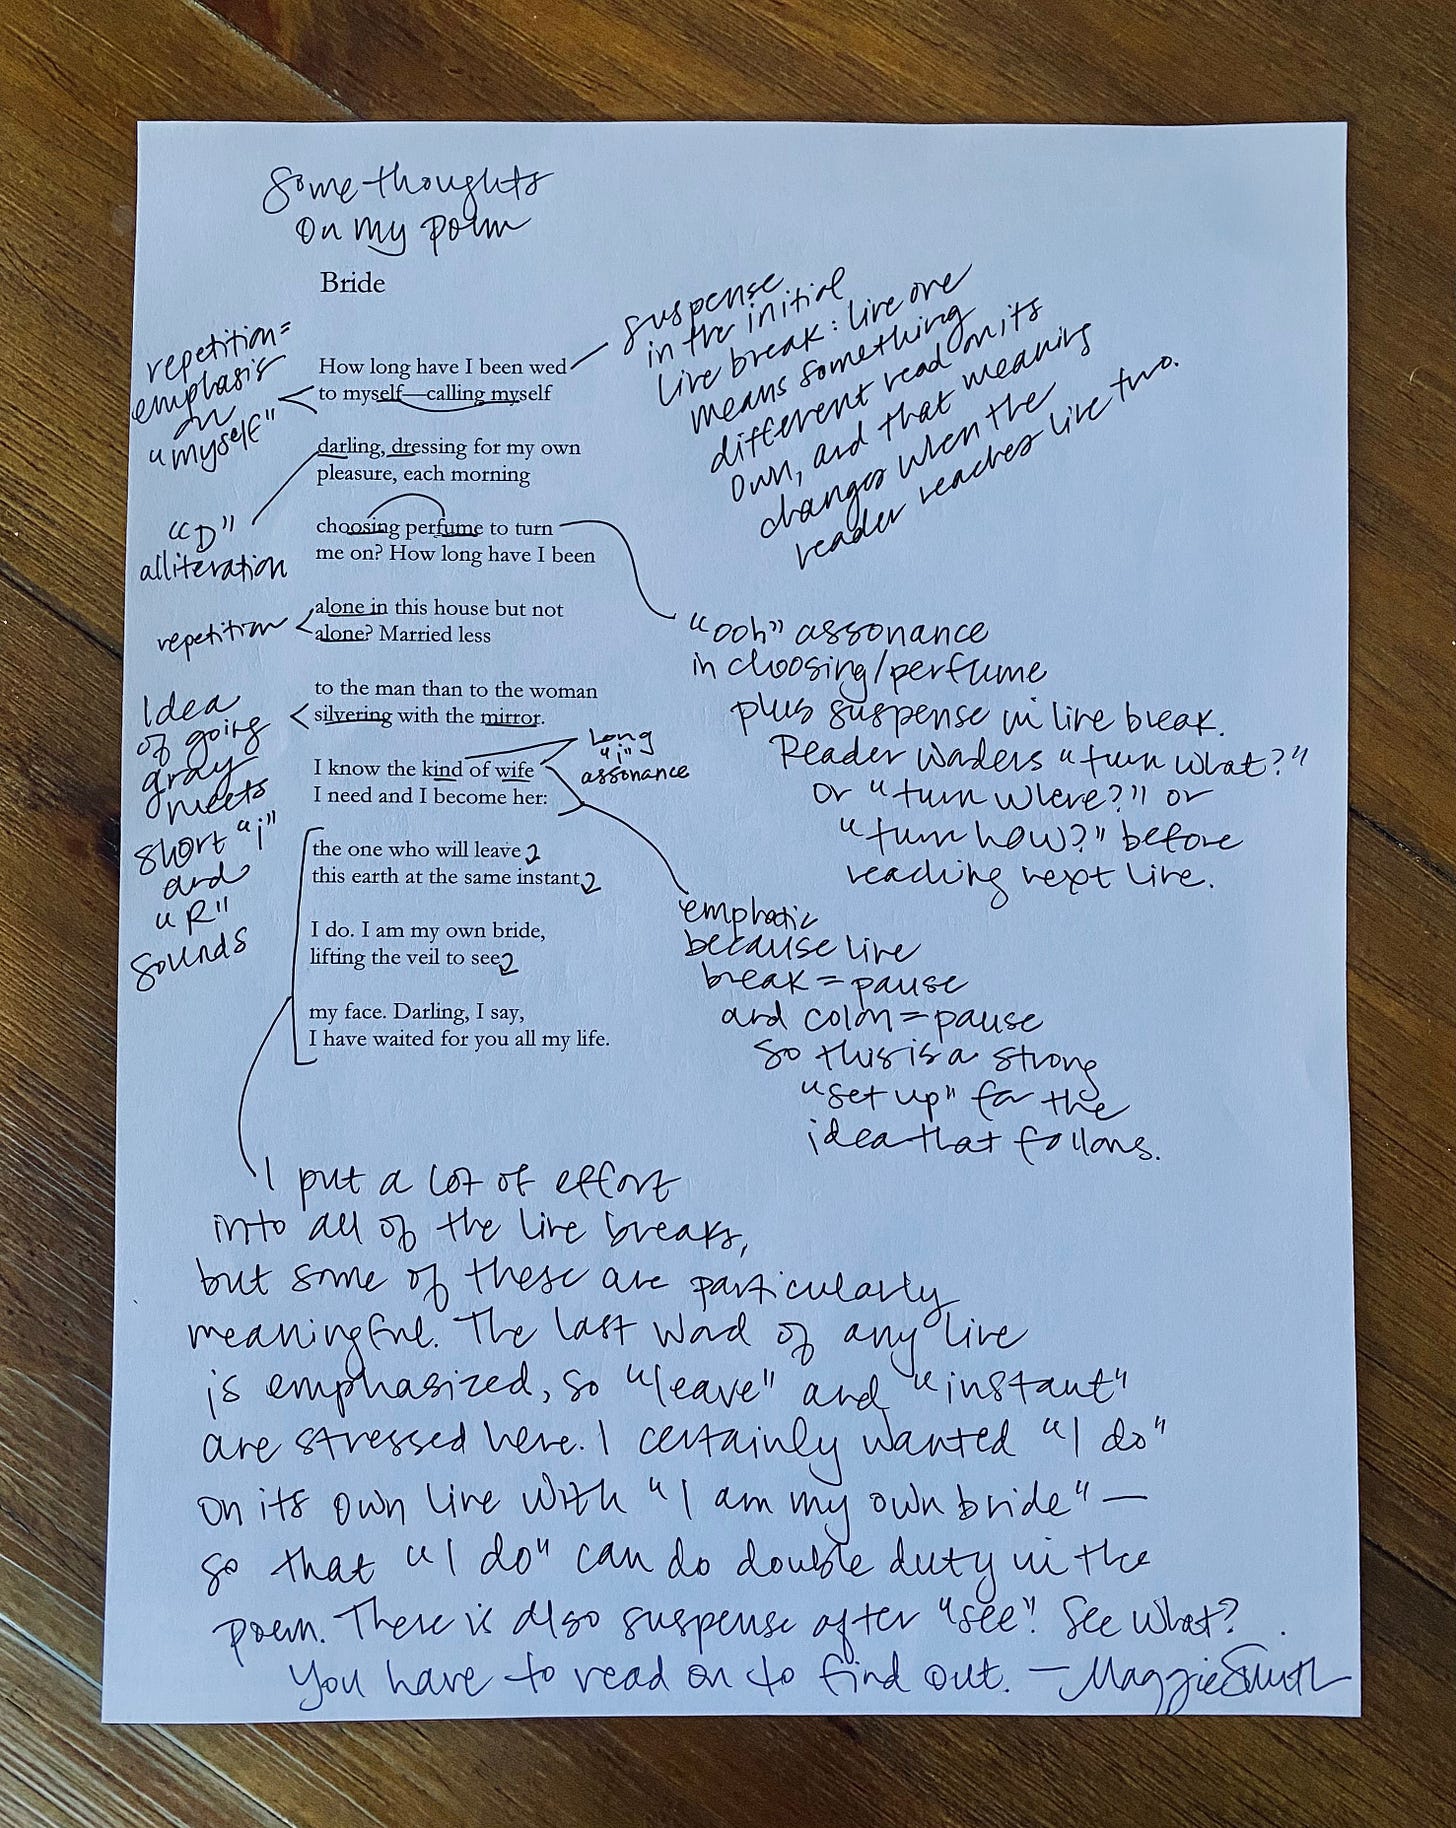 Some thoughts
on my poem
Bride
repetition =
emphasis
on
"myself"
How long have I been wed
to myself—calling myself
suspense
in the initial
line break: line one
means something
different read on its
own, and that meaning
changes when the
reader reaches line two.
darling, dressing for my own
pleasure, each morning
"D"
alliteration
choosing perfume to turn
me on? How long have I been
"ooh" assonance
in choosing/perfume
plus suspense in line break.
Reader wonders "turn what?"
or "turn where?" or
"turn how?" before
reaching next line.
repetition
alone in this house but not
alone? Married less
Idea
of going
gray
meets
short "i"
and
"R"
sounds
to the man than to the woman
silvering with the mirror.
I know the kind of wife
I need and I become her:
long
"i"
assonance
emphatic
because line
break = pause
and colon = pause
so this is a strong
"set up" for the
idea that follows.
the one who will leave
this earth at the same instant
I do. I am my own bride,
lifting the veil to see
my face. Darling, I say,
I have waited for you all my life.
I put a lot of effort
into all of the line breaks,
but some of these are particularly
meaningful. The last word of any line
is emphasized, so "leave" and "instant"
are stressed here. I certainly wanted "I do"
on its own line with "I am my own bride"—
so that "I do" can do double duty in the
poem. There is also suspense after "see". See what?
You have to read on to find out. —Maggie Smith